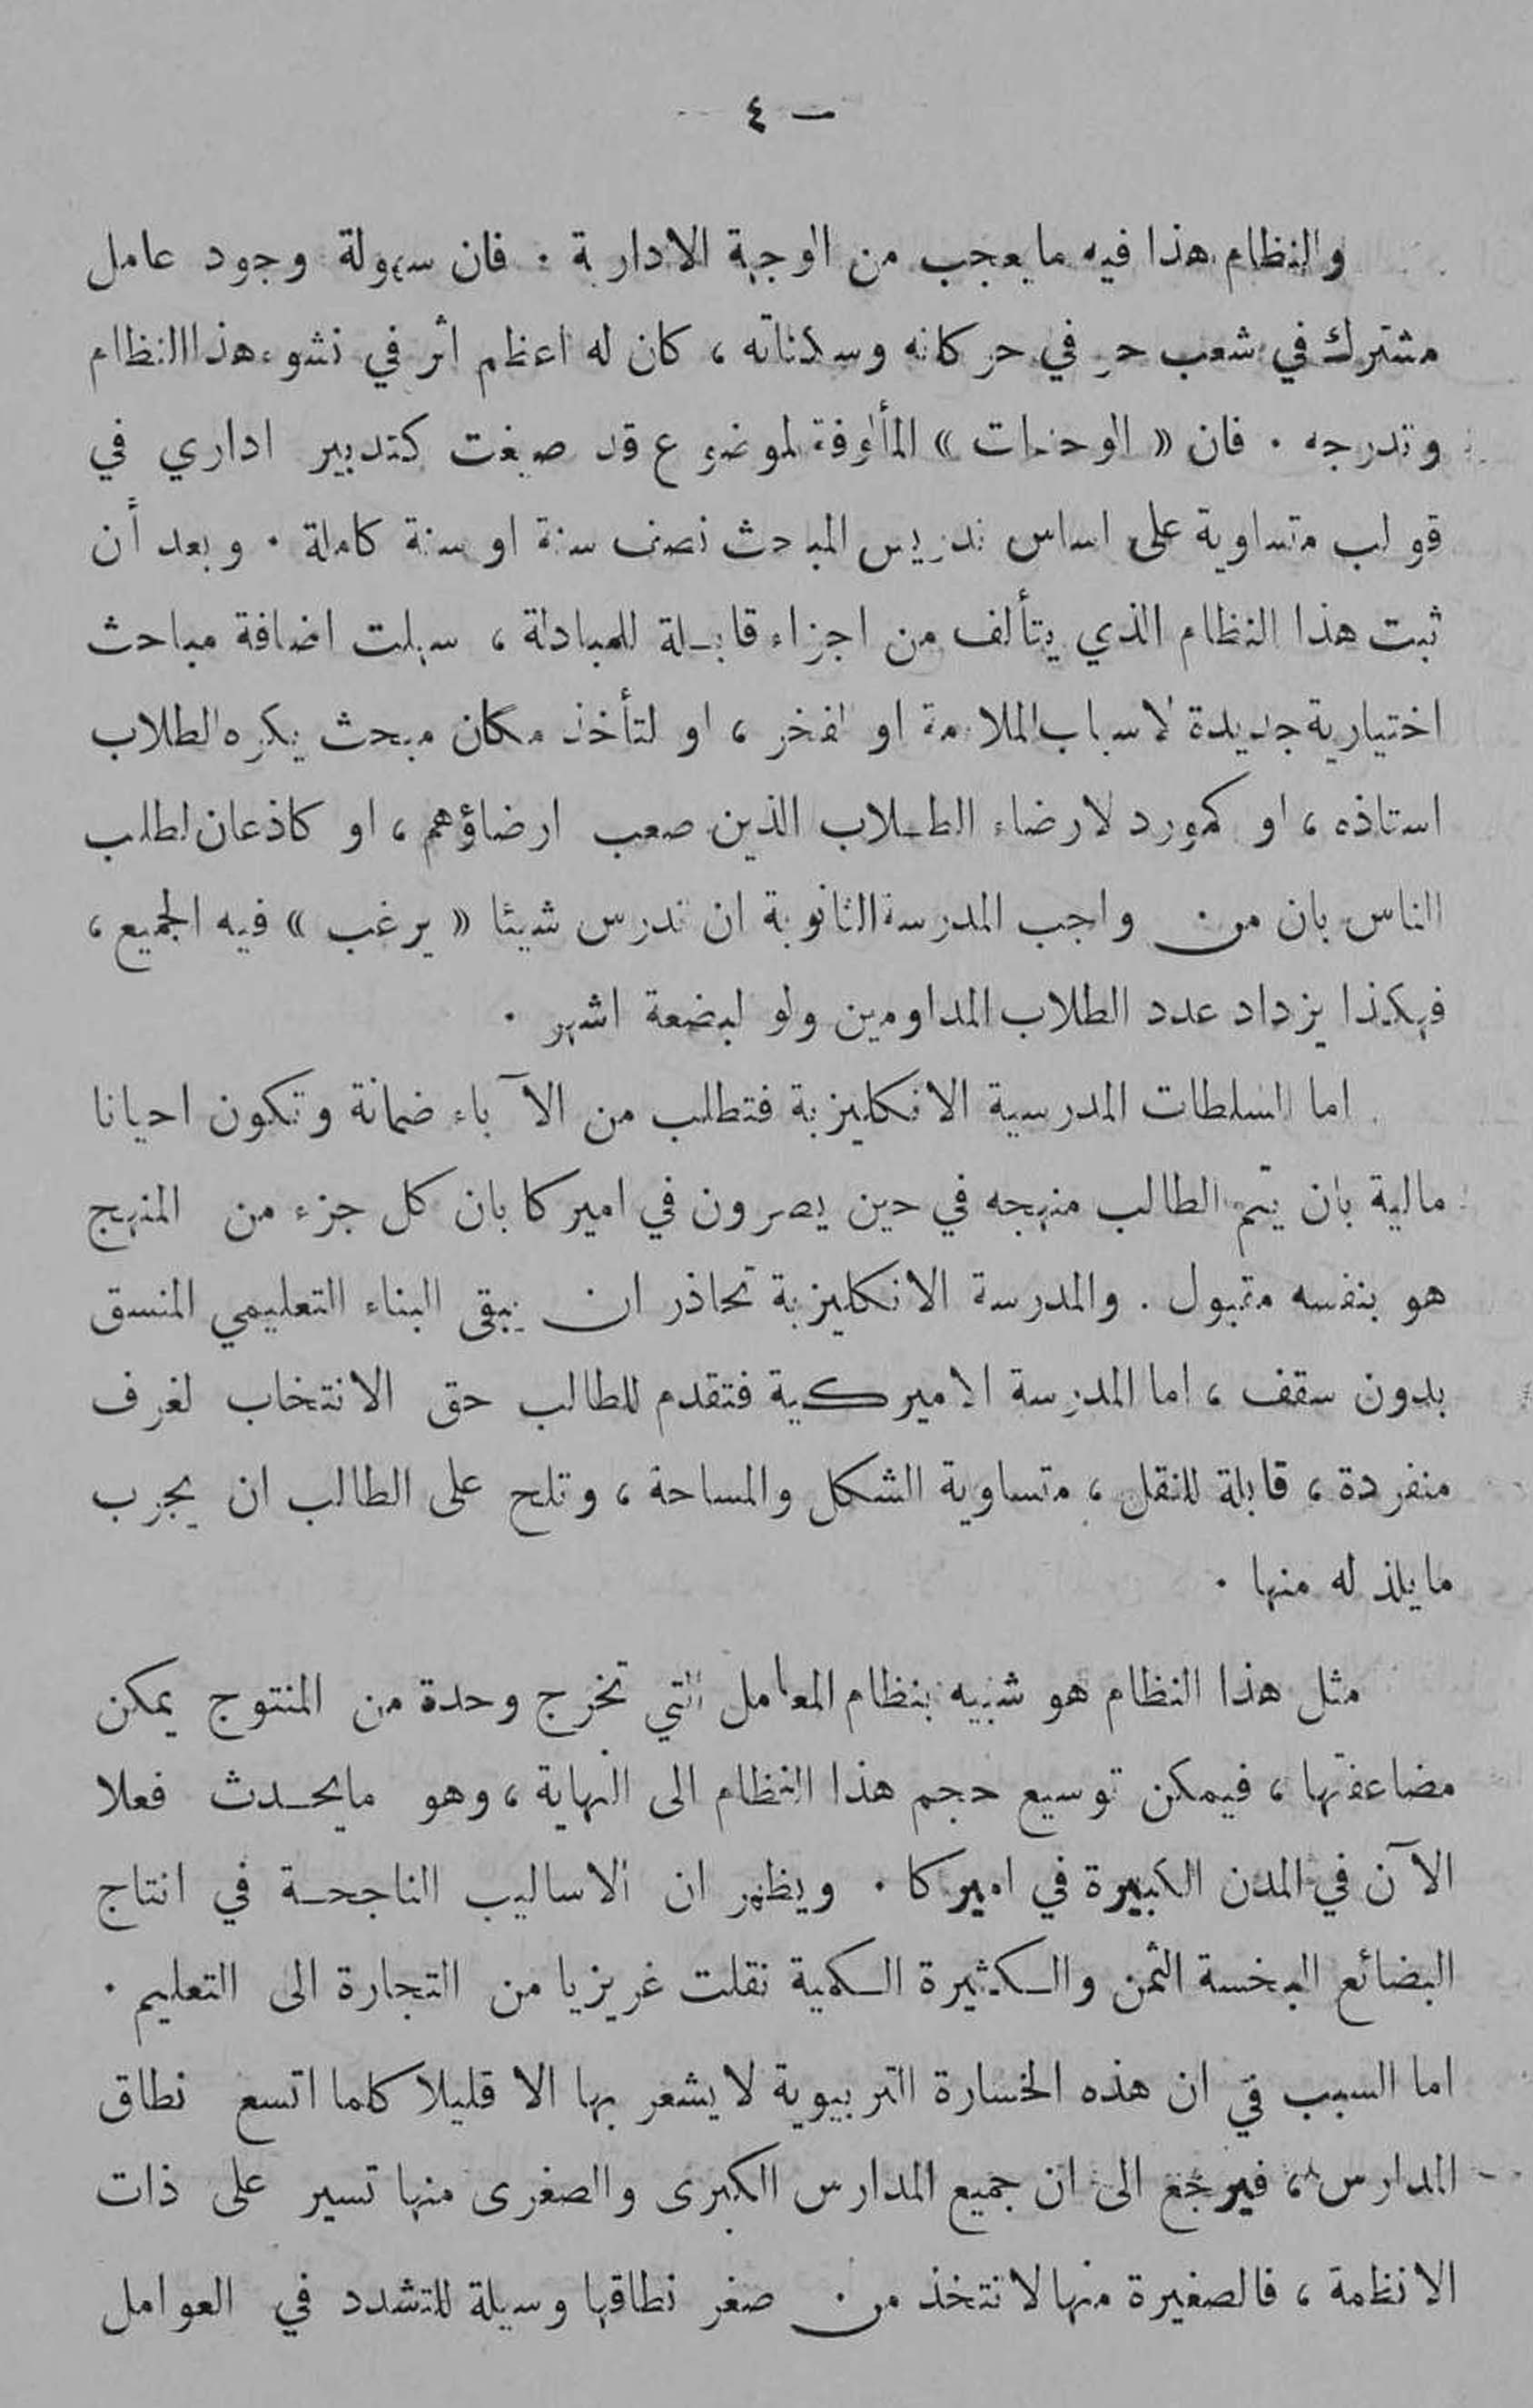 — ٤ —
والنظام هذا فيه ما يعجب من الوجهة الادارية . فان سهولة وجود عامل
مشترك في شعب حر في حركاته وسكناته ، كان له اعظم اثر في نشوء هذا النظام
وتدرجه . فان « الوحدات » المألوفة لموضوع قد صيغت كتدبير اداري في
قوالب متساوية على اساس تدريس المباحث نصف سنة او سنة كاملة . وبعد أن
ثبت هذا النظام الذي يتألف من اجزاء قابلة للمبادلة ، سهلت اضافة مباحث
اختيارية جديدة لاسباب الملاءمة او الفخر ، او لتأخذ مكان مبحث يكره الطلاب
استاذه ، او كمورد لارضاء الطلاب الذين صعب ارضاؤهم ، او كاذعان لطلب
الناس بان من واجب المدرسة الثانوية ان تدرس شيئا « يرغب » فيه الجميع ،
فهكذا يزداد عدد الطلاب المداومين ولو لبضعة اشهر .
اما السلطات المدرسية الانكليزية فتطلب من الآباء ضمانة وتكون احيانا
مالية بان يتم الطالب منهجه في حين يصرون في اميركا بان كل جزء من المنهج
هو بنفسه مقبول . والمدرسة الانكليزية تحاذر ان يبقى البناء التعليمي المنسق
بدون سقف ، اما المدرسة الاميركية فتقدم للطالب حق الانتخاب لغرف
منفردة ، قابلة للنقل ، متساوية الشكل والمساحة ، وتلح على الطالب ان يجرب
ما يلذ له منها .
مثل هذا النظام هو شبيه بنظام المعامل التي تخرج وحدة من المنتوج يمكن
مضاعفتها ، فيمكن توسيع حجم هذا النظام الى النهاية ، وهو ما يحدث فعلا
الآن في المدن الكبيرة في اميركا . ويظهر ان الاساليب الناجحة في انتاج
البضائع البخسة الثمن والكثيرة الكمية نقلت غريزيا من التجارة الى التعليم .
اما السبب في ان هذه الخسارة التربيوية لا يشعر بها الا قليلا كلما اتسع نطاق
المدارس ، فيرجع الى ان جميع المدارس الكبرى والصغرى منها تسير على ذات
الانظمة ، فالصغيرة منها لا تتخذ من صغر نطاقها وسيلة للتشدد في العوامل